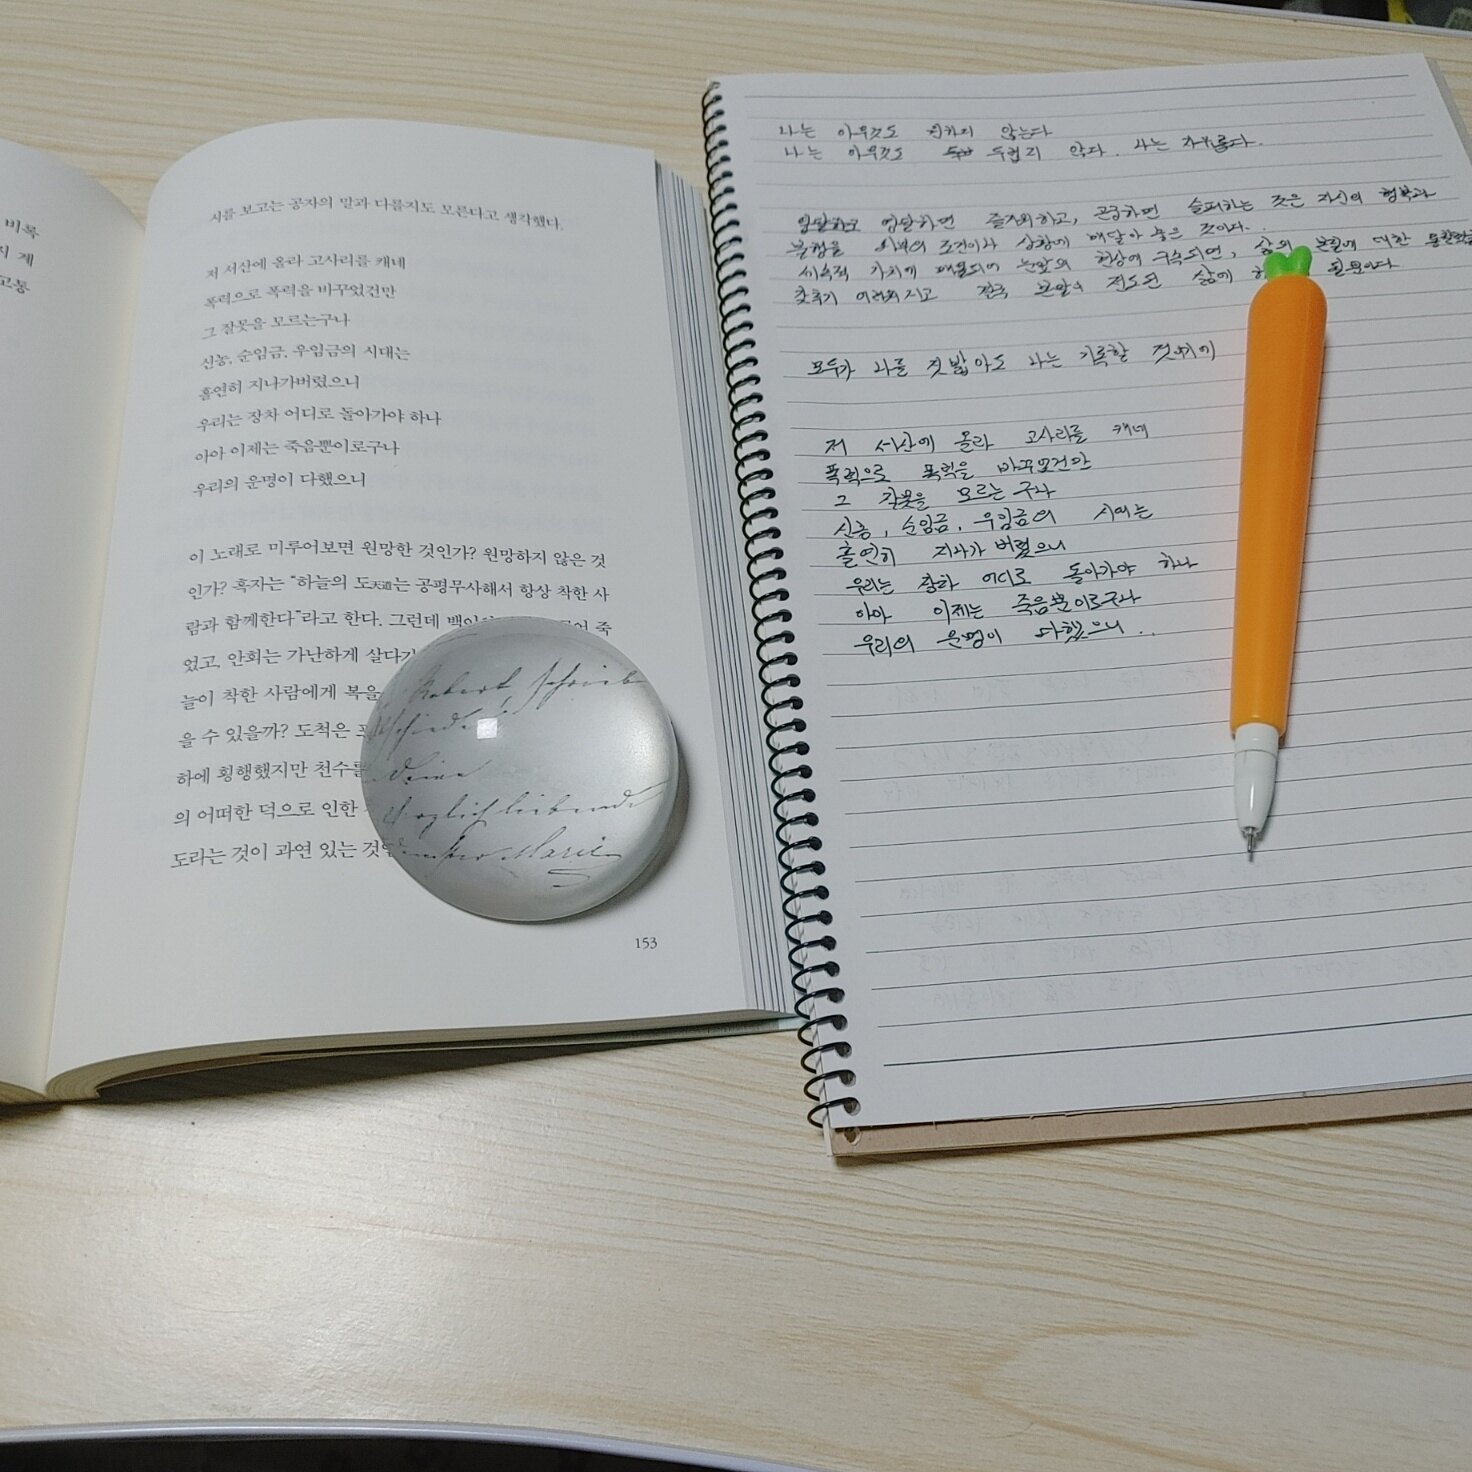 비록
지 게
고통
시를 보고는 공자의 말과 다를지도 모른다고 생각했다.
저 서산에 올라 고사리를 캐네
폭력으로 폭력을 바꾸었건만
그 잘못을 모르는구나
신농, 순임금, 우임금의 시대는
홀연히 지나가버렸으니
우리는 장차 어디로 돌아가야 하나
아아 이제는 죽음뿐이로구나
우리의 운명이 다했으니
이 노래로 미루어보면 원망한 것인가? 원망하지 않은 것
인가? 혹자는 “하늘의 도天道는 공평무사해서 항상 착한 사
람과 함께한다”라고 한다. 그런데 죽
었고, 안회는 가난하게 살다가
늘이 착한 사람에게 복을
을 수 있을까? 도척은
하에 횡행했지만 천수를
의 어떠한 덕으로 인한
도라는 것이 과연 있는
Robert, schreib
deine
herzlich liebende
Marie
153
나는 아무것도 원하지 않는다
나는 아무것도 두렵지 않다. 나는 자유롭다.
영달하면 즐거워하고, 곤궁하면 슬퍼하는 것은 자신의 행복과
불행을 외부의 조건이나 상황에 매달아 놓은 것이다..
세속적 가치에 매몰되어 눈앞의 현상에 구속되면, 삶의 본질에 대한 통찰력을
갖추기 어려워지고 전도된 삶에
모두가 나를 짓밟아도 나는 기록할 것이기
저 서산에 올라 고사리를 캐네
폭력으로 폭력을 바꾸었건만
그 잘못을 모르는구나
신농, 순임금, 우임금의 시대는
홀연히 지나가 버렸으니
우리는 장차 어디로 돌아가야 하나
아아 이제는 죽음뿐이로구나
우리의 운명이 다했으니..